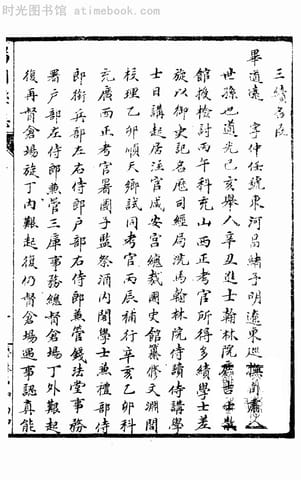 时光图书馆 - atimebook.com
三續名臣
畢道遠 字仲任統東河昌緒子明遼東巡
世孫也道光己亥舉人辛丑進士翰林院
館授檢討丙午科充山西正考官所得多績學士差
旋以御史記名歷司經局洗馬翰林院侍讀侍講學
士日講起居注官咸安宮總裁國史館纂修文淵閣
校理乙卯順天鄉試同考官丙辰補行辛亥乙卯科
充廣西正考官署國子監祭酒內閣學士兼禮部侍
郎銜兵部左右侍郎戶部右侍郎兼管錢法堂事務
署戶部左侍郎兼管三庫事務總督倉場丁外艱起
復再督倉場旋丁內艱起復仍督倉場遇事認真能